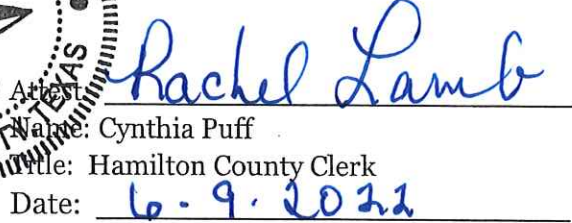 TEXAS
Attest: Rachel Lamb
Name: Cynthia Puff
Title: Hamilton County Clerk
Date: 6.9.2022